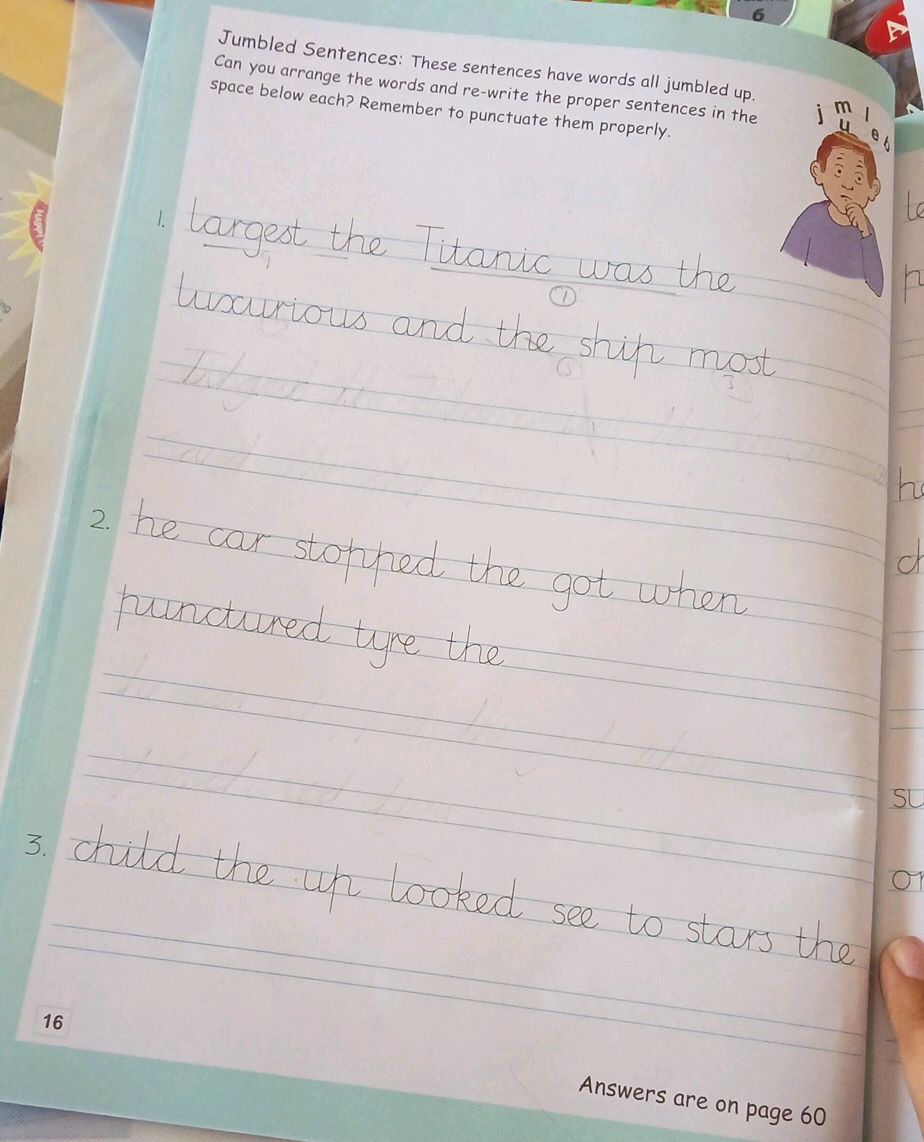 6
Jumbled Sentences: These sentences have words all jumbled up.
Can you arrange the words and re-write the proper sentences in the
space below each? Remember to punctuate them properly.
j m l
u e b
1. largest the Titanic was the
luxurious and the ship most
2. he car stopped the got when
punctured tyre the
3. child the up looked see to stars the
16
Answers are on page 60